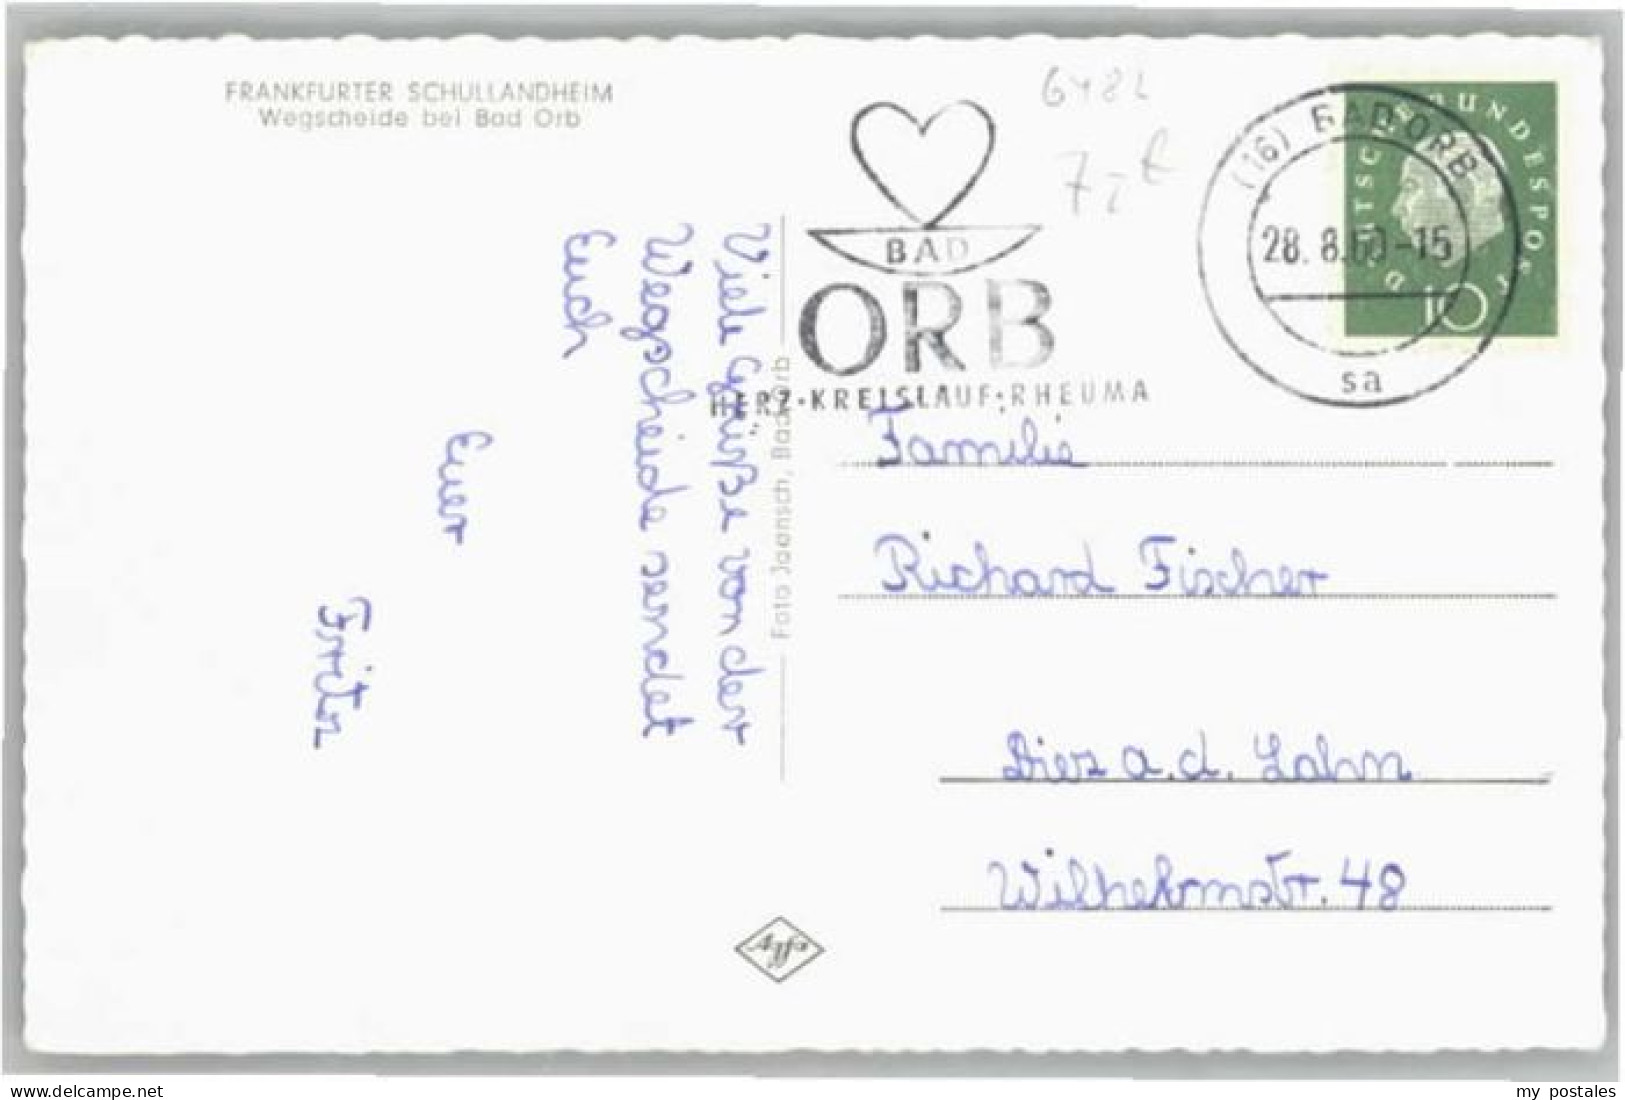 FRANKFURTER SCHULLANDHEIM
Wegscheide bei Bad Orb
6482
7,-
BAD
ORB
HERZ·KREISLAUF·RHEUMA
(16) BAD ORB
28. 8.60-15
sa
DEUTSCHE BUNDESPOST
10
Viele Grüße von der
Wegscheide sendet
Euch
Euer
Fritz
Foto Jaensch, Bad Orb
Familie
Richard Fischer
Diez a.d. Lahn
Wilhelmstr. 48
Agfa
www.delcampe.net
my_postales